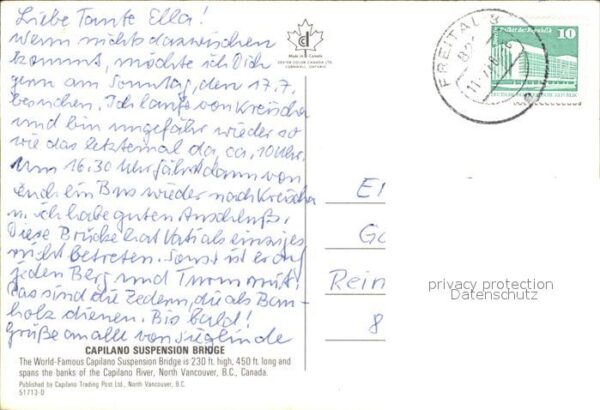 Liebe Tante Ella!
Wenn nichts dazwischen
kommt, möchte ich Dich
gern am Sonntag, den 17.7.
besuchen. Ich laufe von Kreischa
und bin ungefähr wieder so
wie das letztemal da, ca. 10 Uhr.
Um 16.30 Uhr fährt dann von
euch ein Bus wieder nach Kreischa
u. ich habe guten Anschluß.
Diese Brücke hat Vati als einziges
nicht betreten. Sonst ist er auf
jeden Berg und Turm mit!
Das sind die Zedern, die als Bau-
holz dienen. Bis bald!
Grüße an alle von Sieglinde
CAPILANO SUSPENSION BRIDGE
The World-Famous Capilano Suspension Bridge is 230 ft. high, 450 ft. long and
spans the banks of the Capilano River, North Vancouver, B.C., Canada.
Published by Capilano Trading Post Ltd., North Vancouver, B.C.
51713-D
Made in Canada
CORNWALL, ONTARIO
FREITAL
Palast der Republik
10
El
Ga
Rein
8
privacy protection
Datenschutz